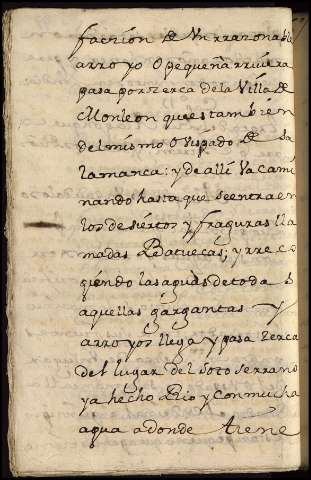 facsion de Vn rrazonable
arroyo O pequeña rriviera
pasa por zerca de la Villa de
Monleon que es tambien
del mismo Ovispado de Sa
lamanca: y de alli va cami
nando hasta que se entra en
los desiertos y fraguras lla
madas Batuecas; y rreco
giendo las aguas de todas
aquellas gargantas y
arroyos llega y pasa zerca
del lugar del Soto serrano
ya hecho Rio y con mucha
agua a donde tiene